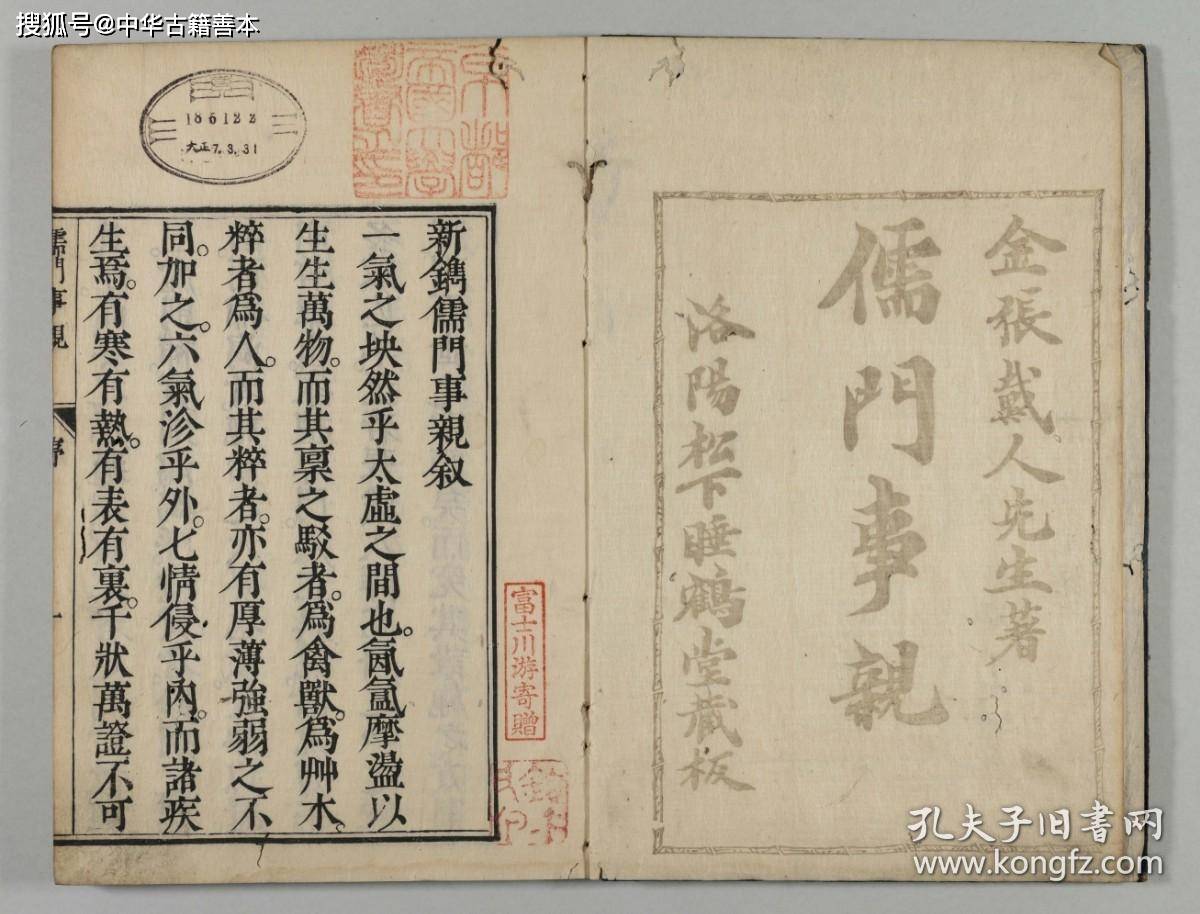 搜狐号@中华古籍善本
金張戴人先生著
儒門事親
洛陽松下睡鶴堂藏板
186122
大正7.3.31
富士川游寄贈
新鐫儒門事親叙
一氣之坱然乎太虛之間也。氤氳摩盪以
生生萬物。而其稟之駁者。爲禽獸。爲艸木。
粹者爲人。而其粹者。亦有厚薄強弱之不
同。加之。六氣沴乎外。七情侵乎內。而諸疾
生焉。有寒有熱。有表有裏。千狀萬證不可
儒門事親
序
一
孔夫子旧书网
www.kongfz.com